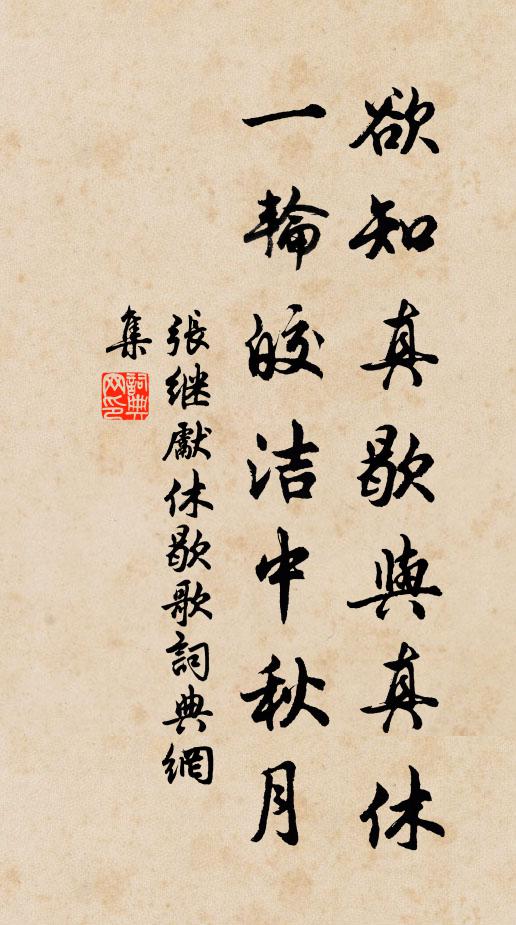 欲知真歇與真休
一輪皎洁中秋月
張继獻休歇歌詞典網
集
詞典网印